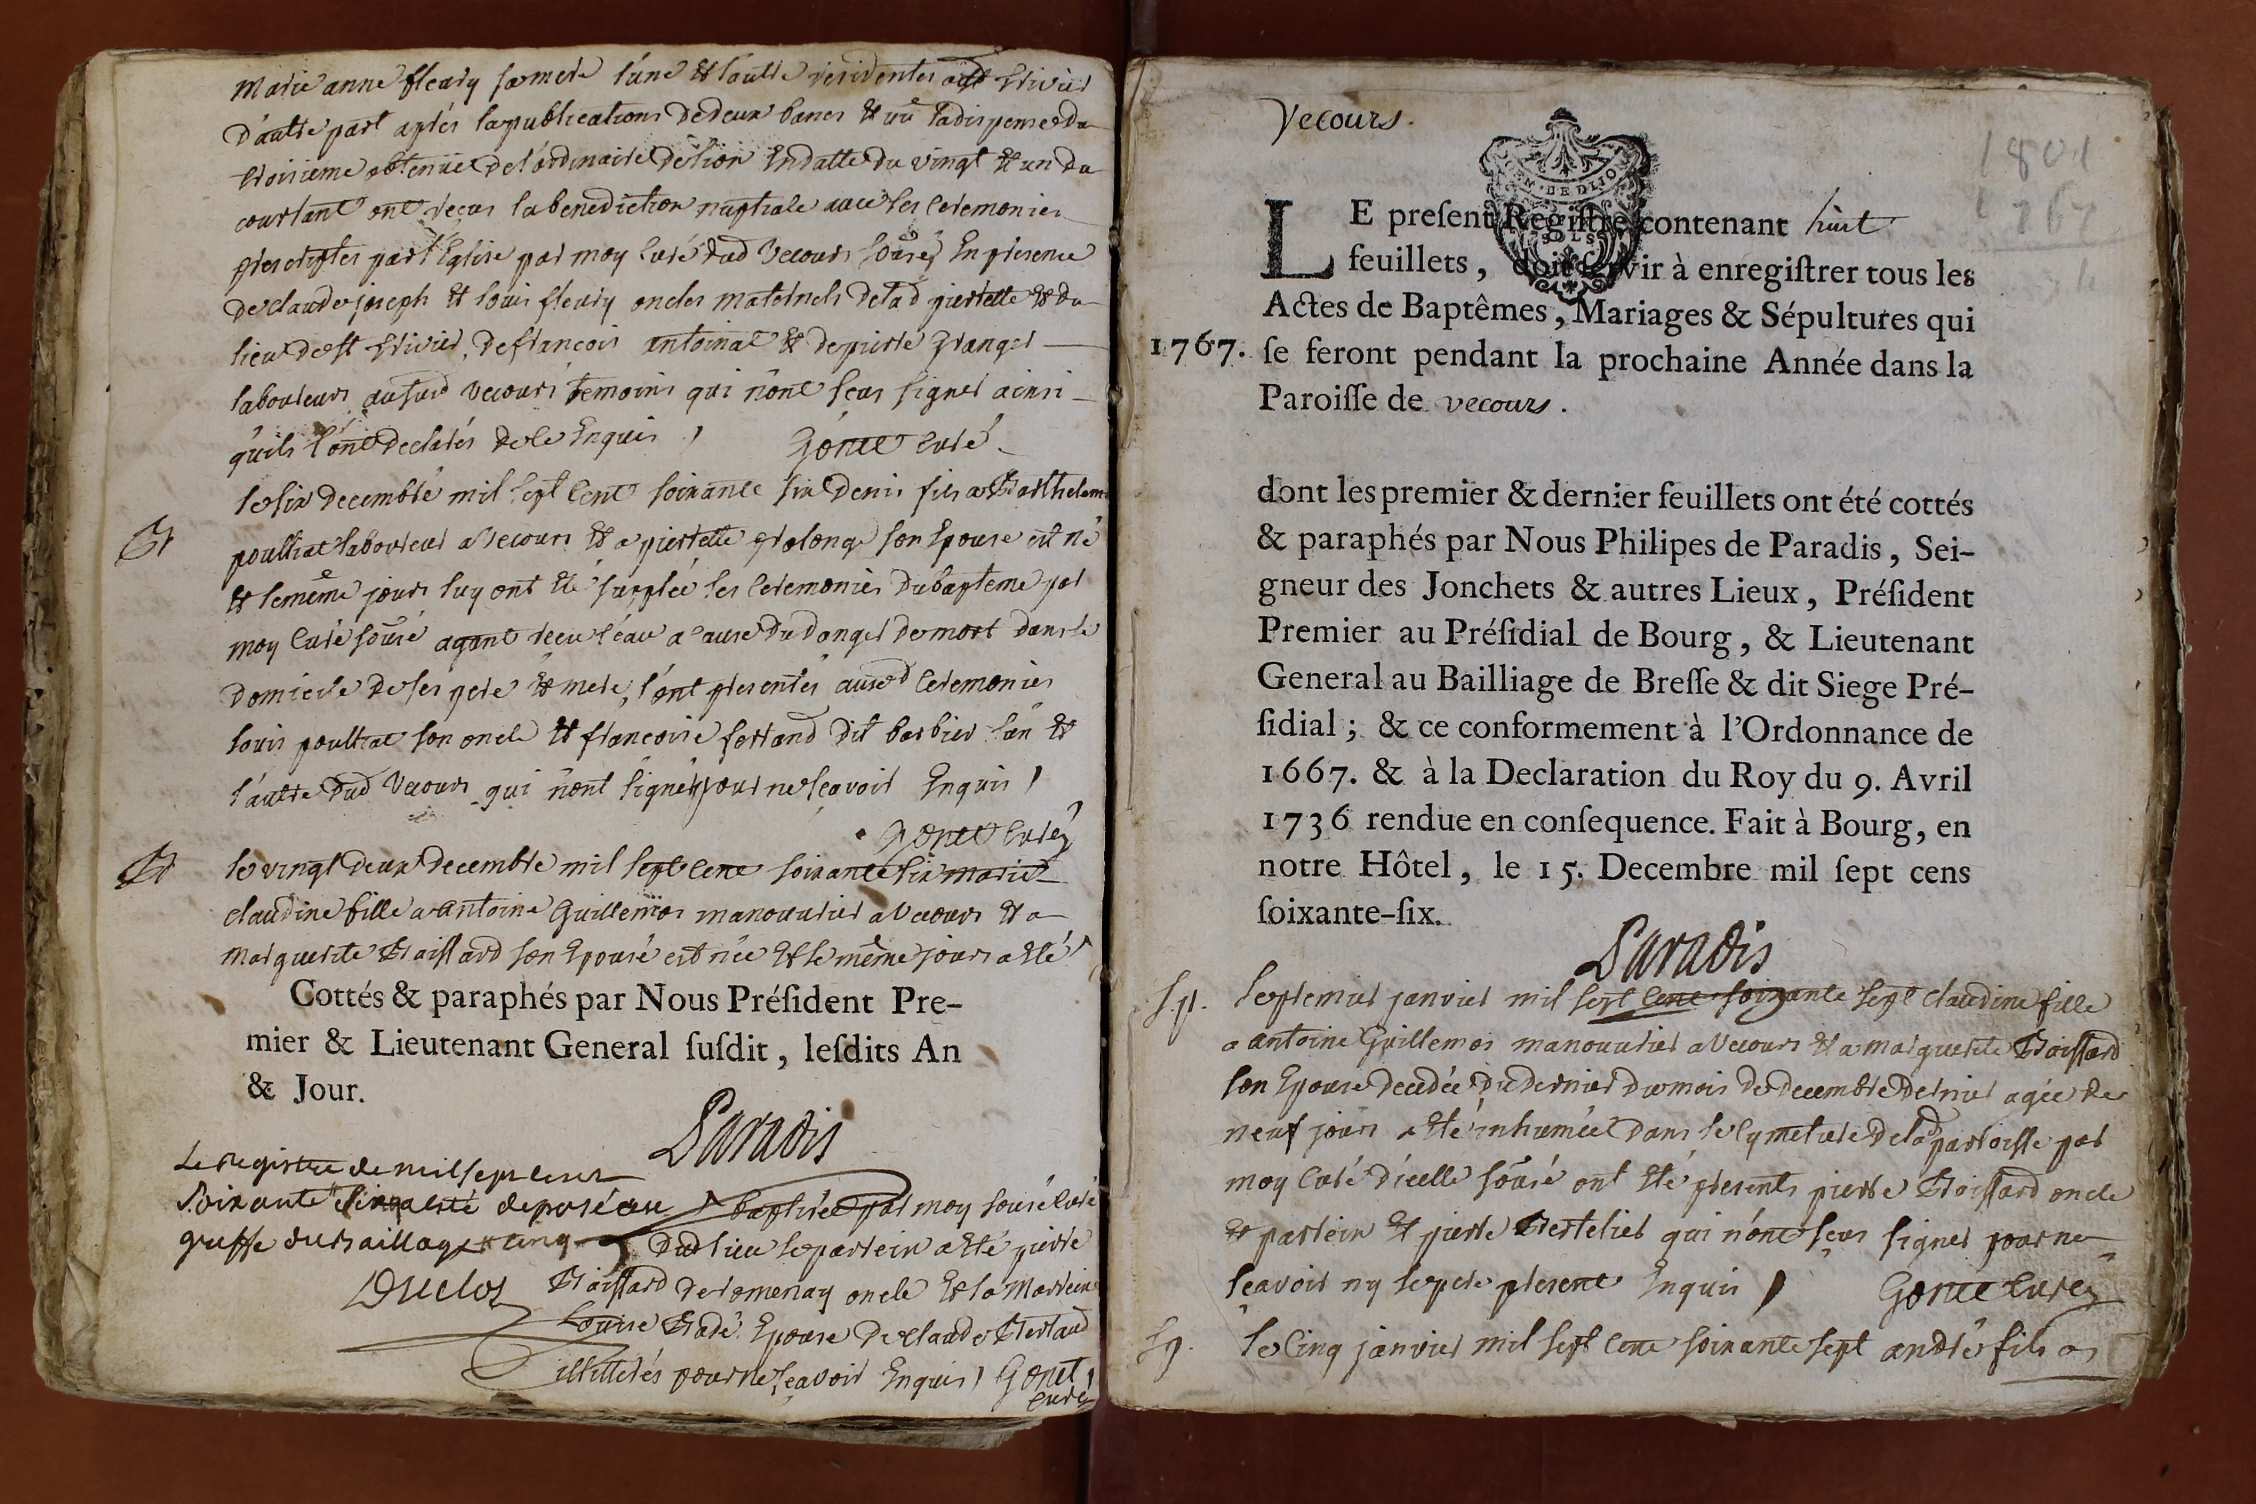 Marie anne fleury sa mere l'une et l'autre residentes
D'autre part aprés la publications de deux bancs et vû la dispense du
troisieme obtenüe de l'ordinaire de lion En datte du vingt et un du
courtant ont reçus la benediction nuptiale avec les ceremonies
prescriptes par l'Eglise par moy curé dud Vecours sousé En presence
de claude joseph et louis fleury oncles maternels de lad pierrette et du
lieu de st trivier, de francois antoinat et de pierre granger
laboureurs audud vecours temoins qui n'ont sçus signer ainsi
qu'ils l'ont declarés de ce Enquis
Gonet curé
le six decembre mil sept cent soixante six Denis fils a Barthelemi
poulliat laboureur a Vecours et a pierrette prolonge son Epouse est né
et le même jours luy ont eté supplée les ceremonies du bapteme par
moy curé sousé ayant recu l'eau a cause du danger de mort dans le
domicile de ses pere et mere, l'ont presentés auxd ceremonies
louis poulliat son oncle et francoise ferrand dit barbier l'un et
l'autre dud Vecours qui n'ont signés pour ne sçavoir Enquis
Gonet curé
Bt
le vingt deux decembre mil sept cent soixante six marie
claudine fille a antoine Guillemos manouvrier a Vecours et a
Marguerite Boissard son Epouse est née et le même jours a eté
Cottés & paraphés par Nous Préſident Pre-
mier & Lieutenant General ſuſdit, leſdits An
& Jour.
Paradis
Le registre de mil sept cent
Soixante a eté deposé au
greffe du Baillage
Duclos
baptisée par moy sousé curé
dud lieu le parrein a eté pierre
Boissard de romenay oncle et la Marreine
Louise Badé Epouse de claude Bertaud
illitterés pour ne sçavoir Enquis Gonet
curé
Vecours.
EN. DE DIJO
SOLS
LE preſent Regiſtre contenant huit
feuillets, doit ſervir à enregiſtrer tous les
Actes de Baptêmes, Mariages & Sépultures qui
1767. ſe feront pendant la prochaine Année dans la
Paroiſſe de vecours.
1801
1767
dont les premier & dernier feuillets ont été cottés
& paraphés par Nous Philipes de Paradis, Sei-
gneur des Jonchets & autres Lieux, Préſident
Premier au Préſidial de Bourg, & Lieutenant
General au Bailliage de Breſſe & dit Siege Pré-
ſidial; & ce conformement à l'Ordonnance de
1667. & à la Declaration du Roy du 9. Avril
1736 rendue en conſequence. Fait à Bourg, en
notre Hôtel, le 15. Decembre mil ſept cens
ſoixante-ſix.
Paradis
Sp. Le premier janvier mil sept cent soixante sept claudine fille
a antoine Guillemos manouvrier a Vecours et a marguerite Boissard
son Epouse decedée du dernier du mois de decembre dernier agée de
neuf jours a eté inhumée dans le cymetiere de lad parroisse par
moy curé d'icelle sousé ont eté presents pierre Boissard oncle
et parrein et pierre Bertelier qui n'ont sçus signer pour ne
sçavoir ny le pere present Enquis
Gonet curé
le cinq janvier mil sept cent soixante sept andré fils a